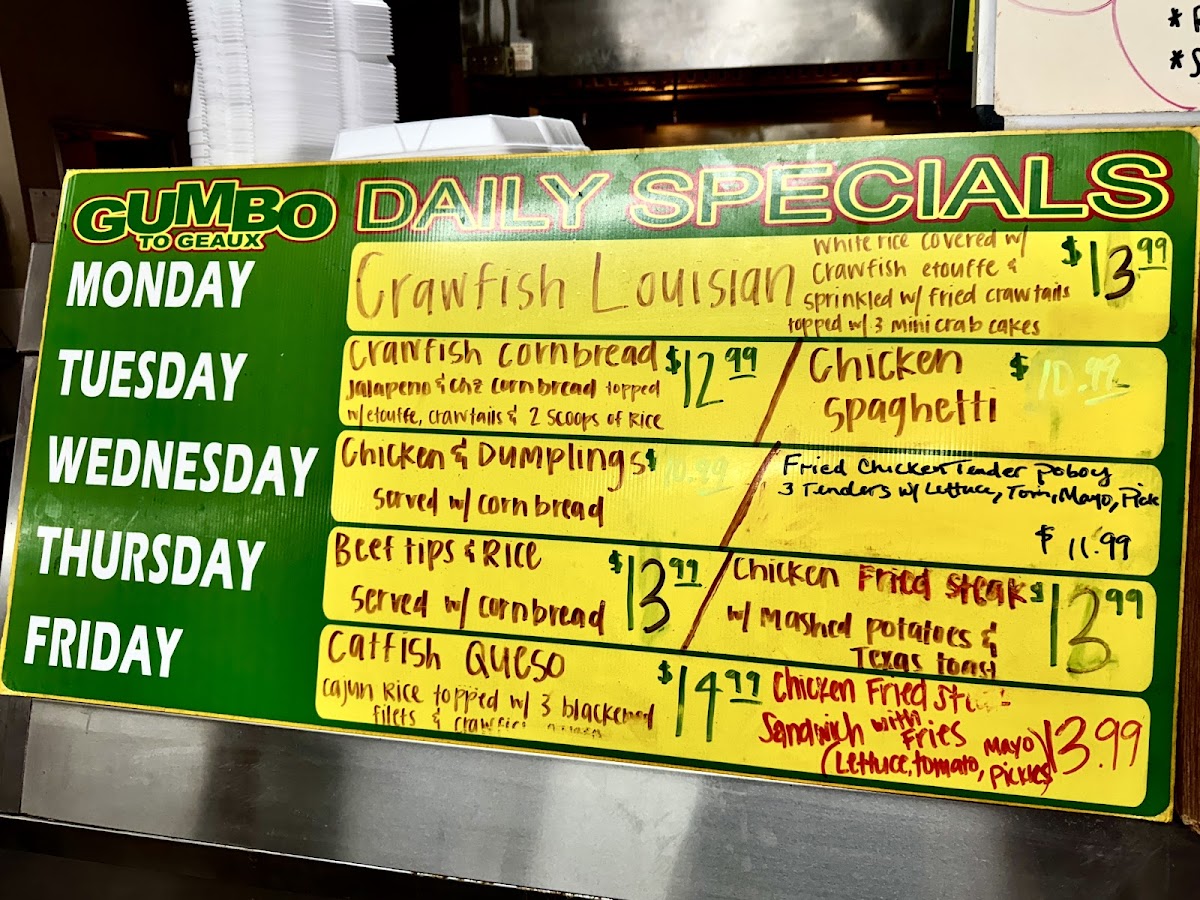 GUMBO
TO GEAUX
DAILY SPECIALS
MONDAY
Crawfish Louisian
White rice covered w/
Crawfish etouffe &
sprinkled w/ fried crawtails
topped w/ 3 mini crab cakes
$13.99
TUESDAY
Crawfish cornbread
Jalapeno & chz cornbread topped
w/etouffe, crawtails & 2 scoops of Rice
$12.99
Chicken
spaghetti
$10.99
WEDNESDAY
Chicken & Dumplings
served w/ cornbread
$10.99
Fried Chicken Tender poboy
3 Tenders w/ Lettuce, Tom, Mayo, Pick
$11.99
THURSDAY
Beef tips & Rice
served w/ cornbread
$13.99
Chicken Fried steak
w/ Mashed potatoes &
Texas toast
$13.99
FRIDAY
Catfish Queso
Cajun Rice topped w/ 3 blackened
filets &
$14.99
Chicken Fried
Sandwich with
Fries
(Lettuce, tomato, mayo
pickles)
13.99